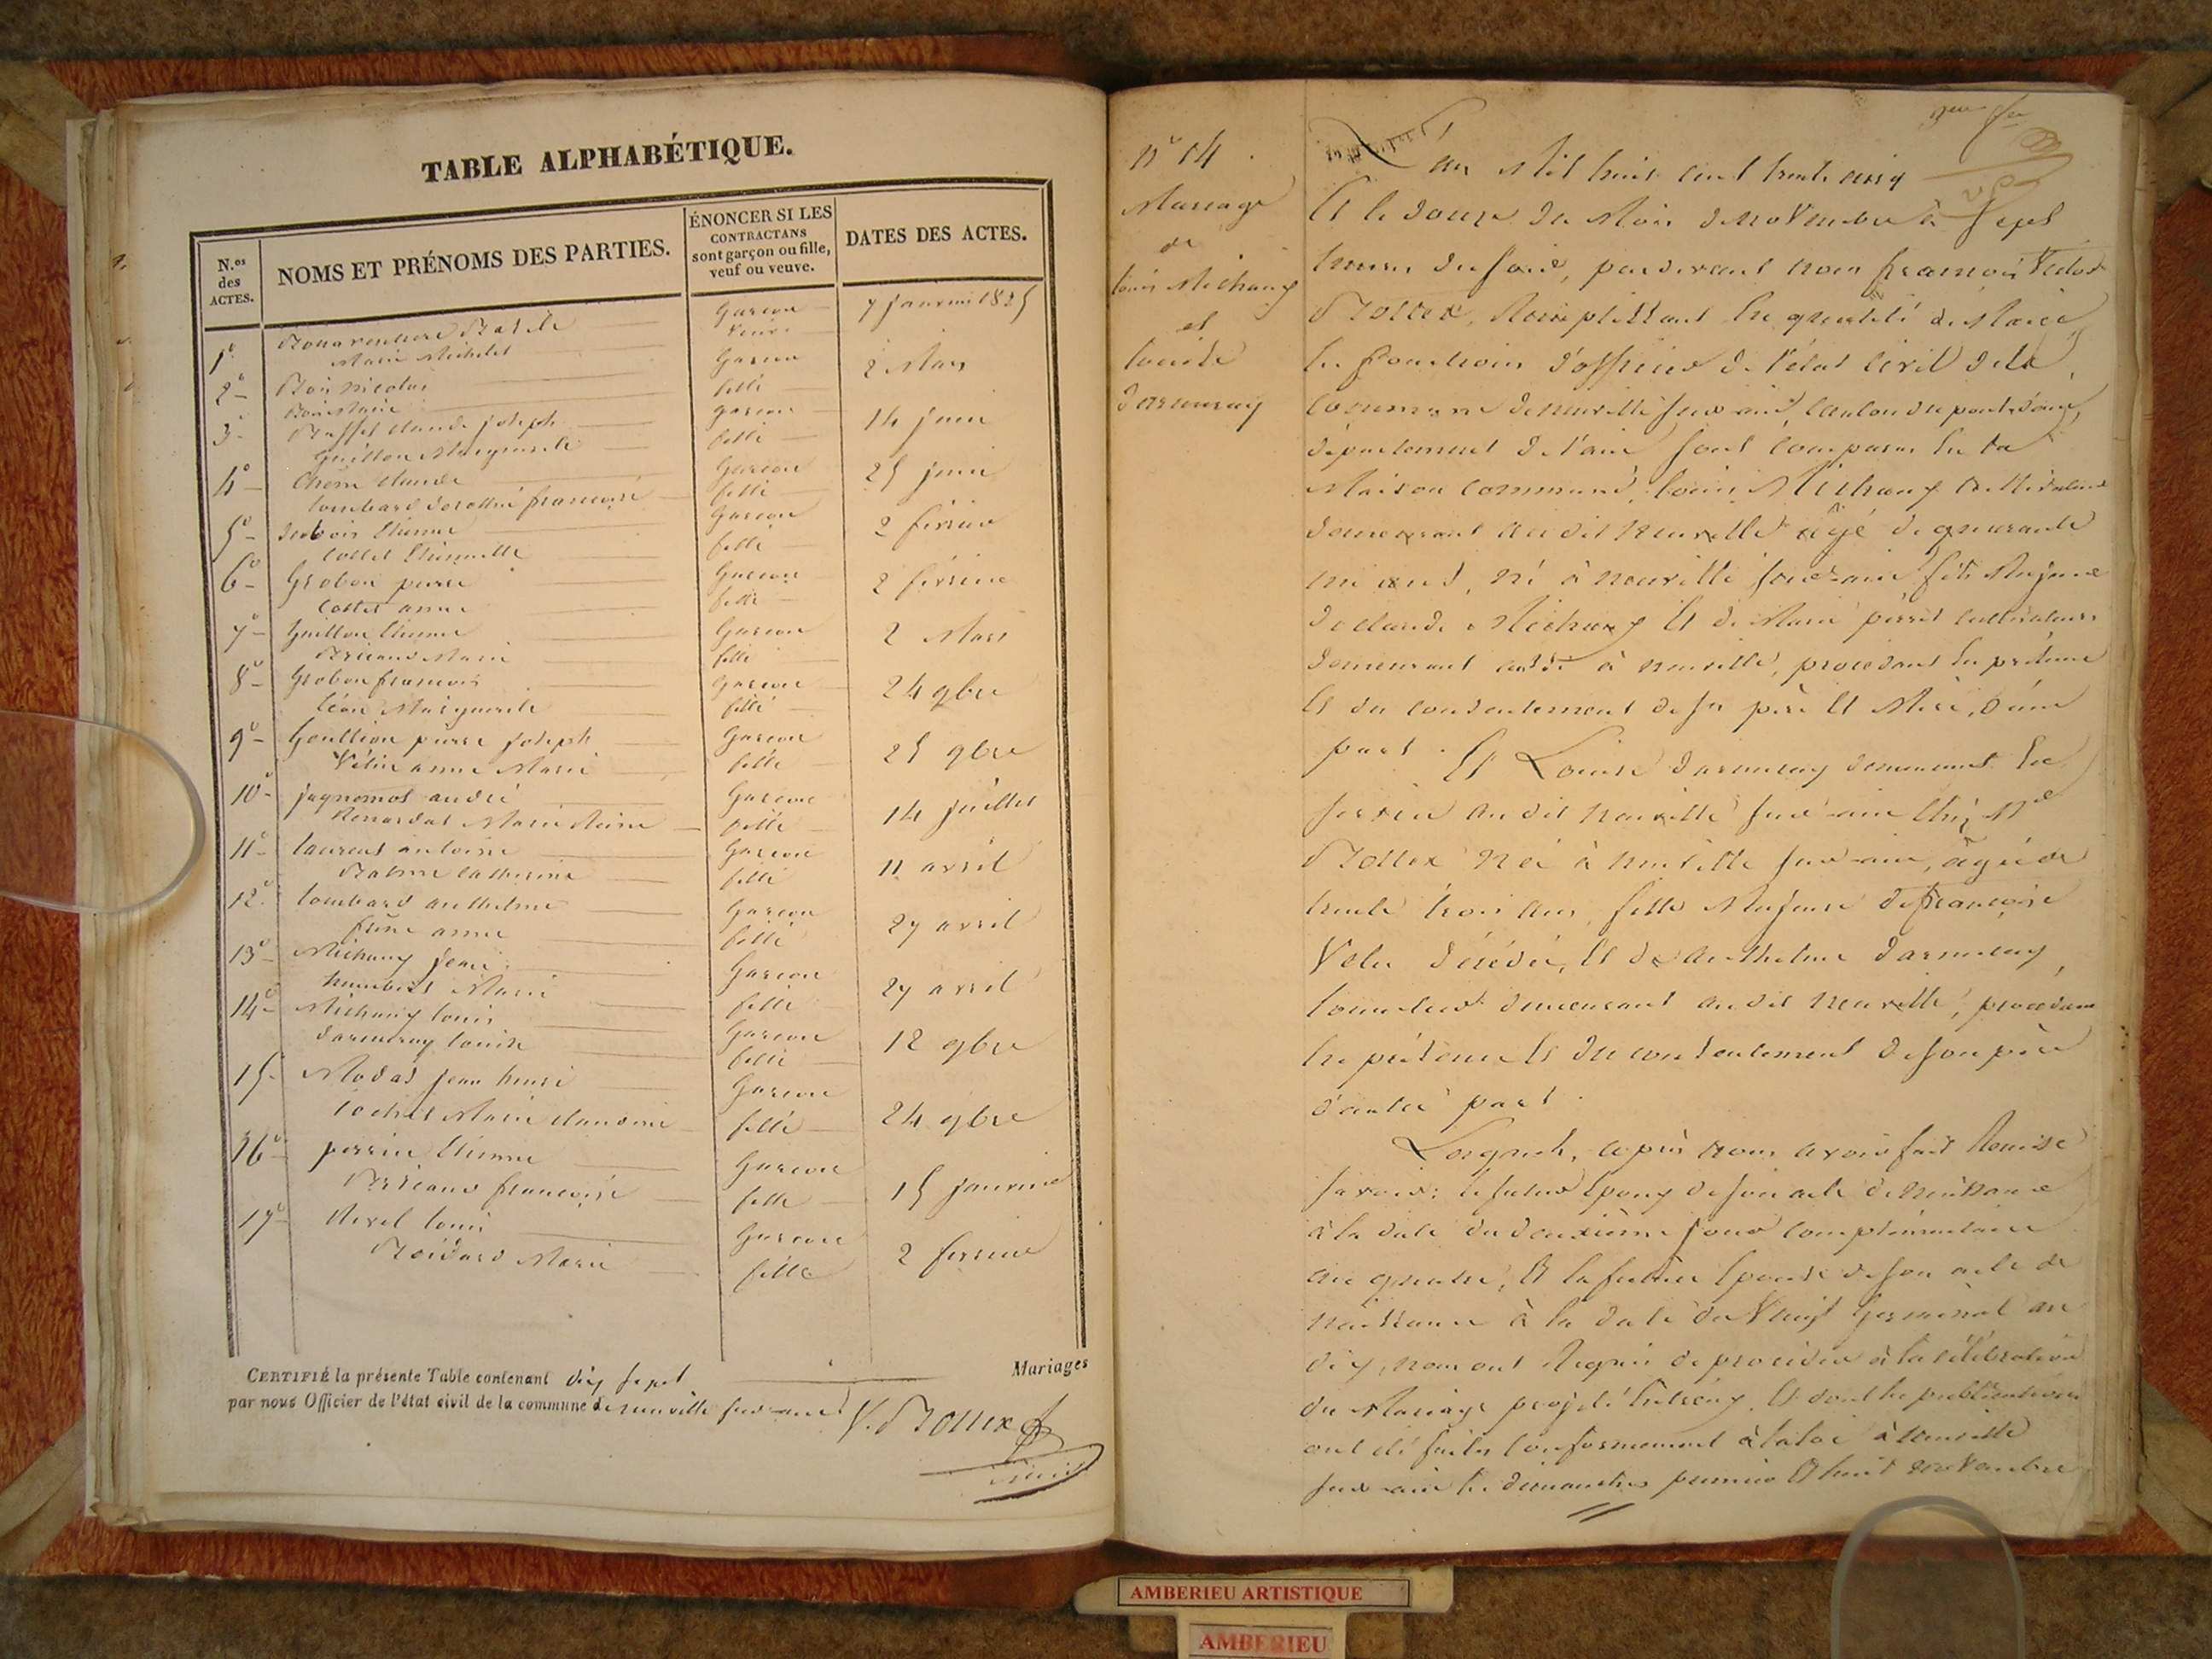 TABLE ALPHABÉTIQUE.
N.os des ACTES.
NOMS ET PRÉNOMS DES PARTIES.
ÉNONCER SI LES CONTRACTANS sont garçon ou fille, veuf ou veuve.
DATES DES ACTES.
1° Bonaventure Garçon 7 janvier 1835
Marie Michelet veuve
2° Nicolas Garçon 2 Mars
Marie fille
3° Claude joseph garçon 14 juin
Guillon Marguerite fille
4° Chêne Claude Garçon 25 juin
Lombard françoise fille
5° Dubois Etienne Garçon 2 février
Collet fille
6° Grobon pierre Garçon 2 février
Collet anne fille
7° Guillon Etienne Garçon 2 Mars
Marie fille
8° Grobon francois Garçon 24 9bre
Marguerite fille
9° pierre joseph Garçon 25 9bre
Vélin anne Marie fille
10° juynemot andré Garçon 14 juillet
Marie fille
11° Laurent antoine Garçon 11 avril
Catherine fille
12° Lombard anthelme Garçon 27 avril
anne fille
13° Michaux jean Garçon 27 avril
humbert Marie fille
14° Michaux louis Garçon 12 9bre
Darmeray louise fille
15° jean henri Garçon 24 9bre
Marie claudine fille
16° perrin Etienne Garçon 15 janvier
françoise fille
17° louis Garçon 2 février
Marie fille
CERTIFIÉ la présente Table contenant dix sept Mariages
par nous Officier de l'état civil de la commune de neuville sur ain
V. Bottex
n° 14
Mariage
de
louis Michaux
et
louise
Darmeray
L'an Mil huit cent trente cinq
Et le douze du Mois de novembre à Sept
heures du soir, pardevant nous françois Victor
Bottex, Remplissant en qualité de Maire
les fonctions d'officier de l'état civil de la
commune de neuville sur ain, canton du pont d'ain,
département de l'ain sont comparus en la
Maison commune, louis Michaux cultivateur
demeurant au dit neuville âgé de quarante
ans, né à neuville sur ain fils Majeur
de claude Michaux Et de Marie perret cultivateurs
demeurant à neuville, procédant en présence
Et du consentement de ses père Et Mère, d'une
part. Et Louise Darmeray demeurant en
service au dit neuville sur ain chez Mr
Bottex née à neuville sur ain, âgée de
trente trois ans, fille Majeure de françoise
Velu décédée, Et de anthelme Darmeray,
demeurant au dit neuville, procédant
en présence Et du consentement de son père
d'autre part.
Lesquels, après nous avoir fait Remise
savoir: le futur Epoux de son acte de naissance
à la date du deuxième jour complémentaire
an quatre, Et la future Epouse de son acte de
naissance à la date du Vingt Germinal an
dix, nous ont Requis de procéder à la célébration
du Mariage projeté Entr'eux, Et dont les publications
ont été faites conformement à la loi à neuville
sur ain les dimanches premier Et huit novembre
AMBERIEU ARTISTIQUE
AMBERIEU